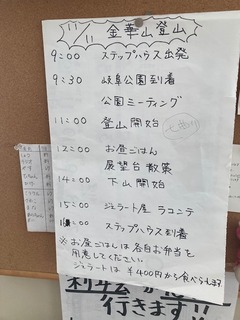 金華山登山
9:00 ステップハウス出発
9:30 岐阜公園到着
公園ミーティング
11:00 登山開始
12:00 お昼ごはん
展望台散策
14:00 下山開始
15:00 ジェラート屋 ラコンテ
ステップハウス到着
※お昼ごはんは各自お弁当を
用意してください。
ジェラートは¥400円から食べられます
行きます!!